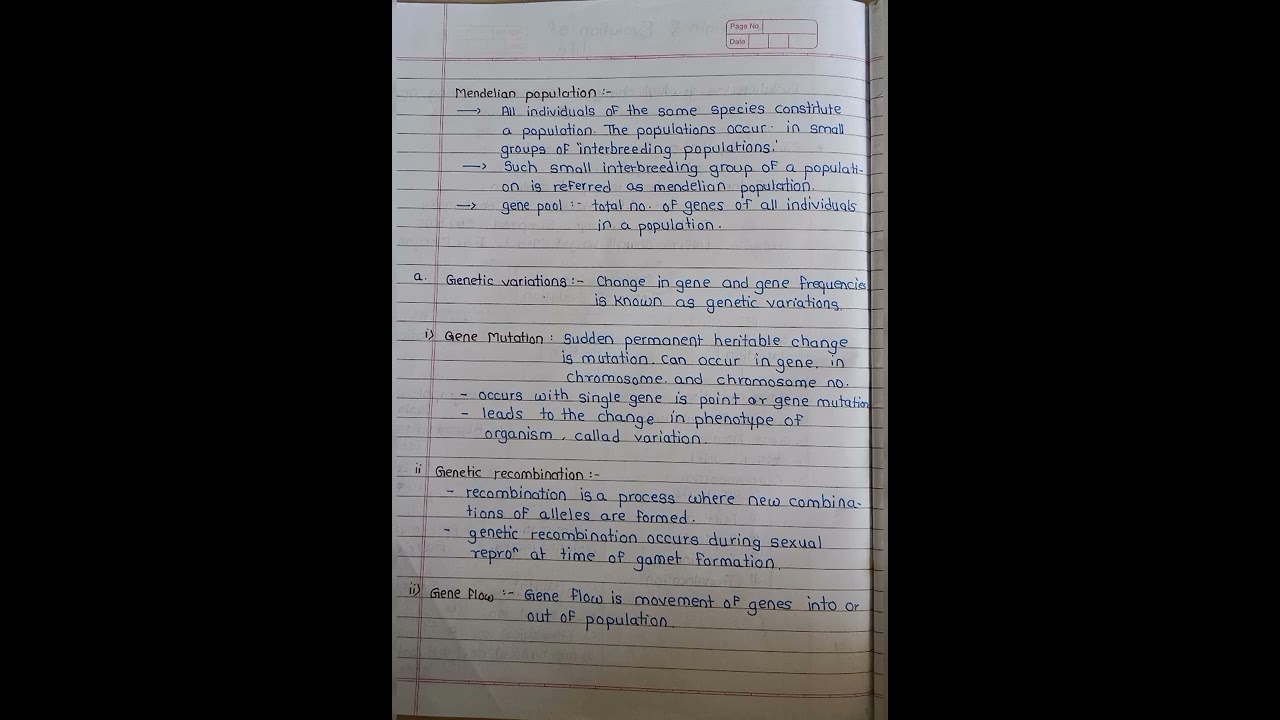 Page No.
Date
Mendelian population :-
→ All individuals of the same species constitute
a population. The populations occur in small
groups of 'interbreeding populations.'
→ Such small interbreeding group of a populati-
on is referred as mendelian population.
→ gene pool :- total no. of genes of all individuals
in a population.
a. Genetic variations :- Change in gene and gene frequencies
is known as genetic variations.
i) Gene Mutation : sudden permanent heritable change
is mutation. can occur in gene, in
chromosome and chromosome no.
- occurs with single gene is point or gene mutation
- leads to the change in phenotype of
organism, callad variation.
ii Genetic recombination :-
- recombination is a process where new combina-
tions of alleles are formed.
- genetic recombination occurs during sexual
repron at time of gamet formation.
ii) Gene flow :- Gene flow is movement of genes into or
out of population.